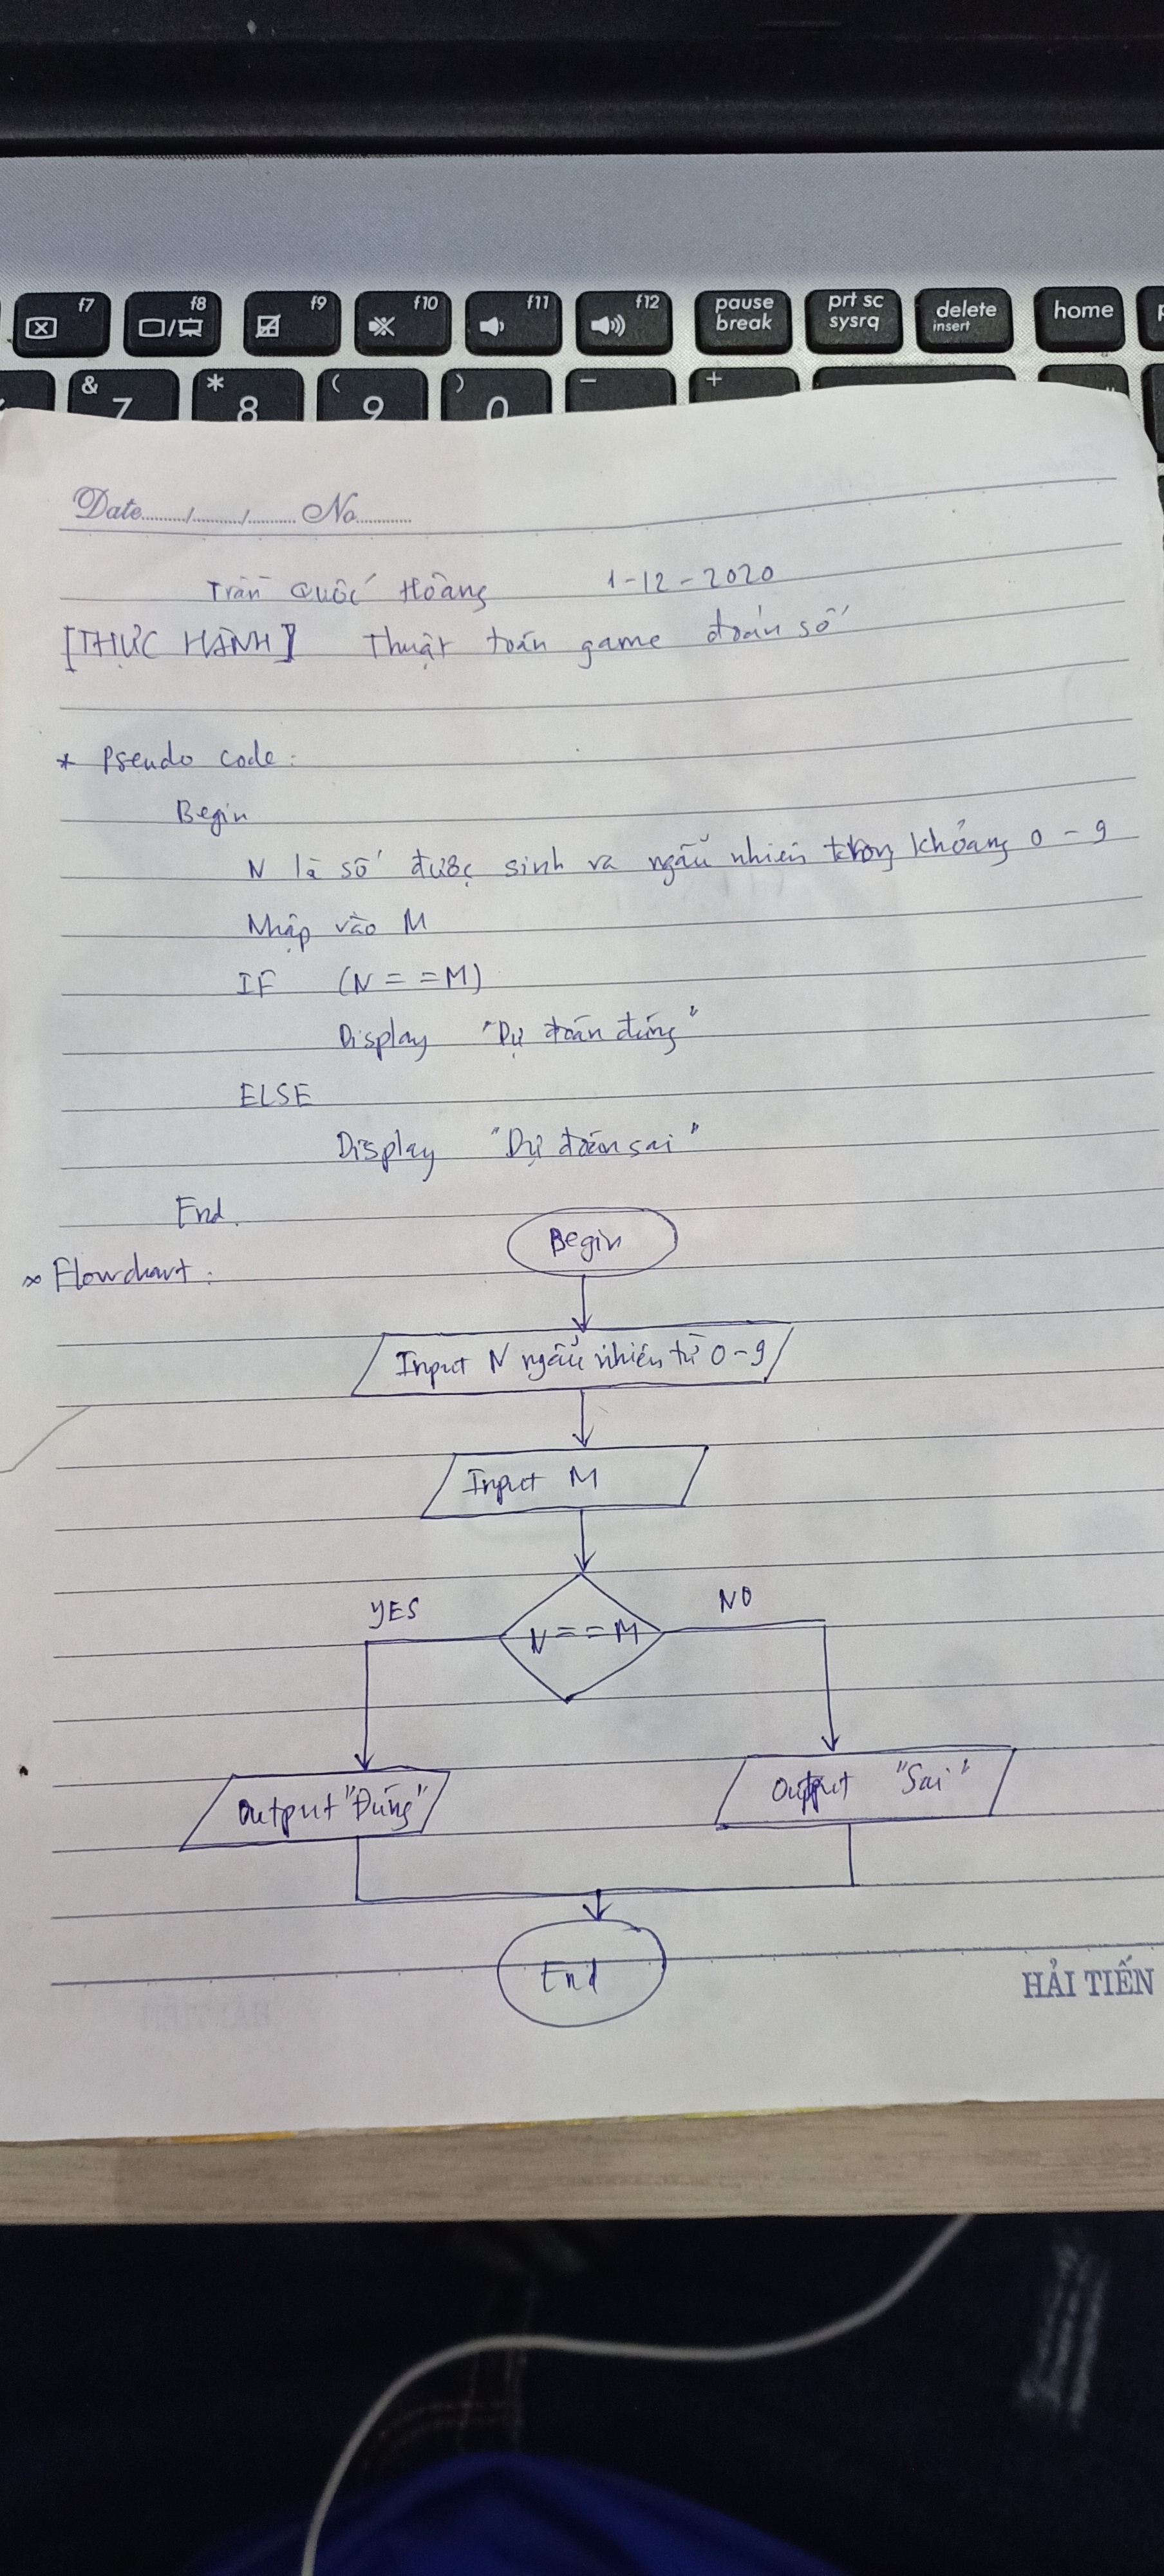 f7 f8 f9 f10 f11 f12 pause break prt sc sysrq delete insert home
& 7 * 8 ( 9 ) 0 – +
Date....../....../...... No..........
Trần Quốc Hoàng 1-12-2020
[THỰC HÀNH] Thuật toán game đoán số
* Pseudo code:
Begin
N là số được sinh ra ngẫu nhiên trong khoảng 0 - 9
Nhập vào M
IF (N = = M)
Display "Dự đoán đúng"
ELSE
Display "Dự đoán sai"
End.
Begin
* Flowchart:
Input N ngẫu nhiên từ 0-9
Input M
YES NO
N = = M
Output "Đúng" Output "Sai"
End
HẢI TIẾN